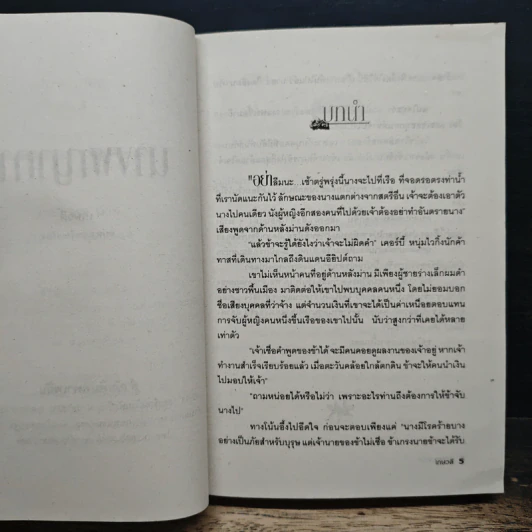 บทนำ
"อย่าลืมนะ เช้าตรู่พรุ่งนี้นางจะไปที่เรือ ที่จอดรอตรงท่าน้ำ
ที่เรานัดแนะกันไว้ ลักษณะของนางแตกต่างจากสตรีอื่น เจ้าจะต้องเอาตัว
นางไปคนเดียว นังผู้หญิงอีกสองคนที่ไปด้วยเจ้าต้องอย่าทำอันตรายนาง"
เสียงพูดจากด้านหลังม่านดังออกมา
"แล้วข้าจะรู้ได้ยังไงว่าเจ้าจะไม่ผิดคำ" เคอร์บี้ หนุ่มไวกิ้งนักค้า
ทาสที่เดินทางมาไกลถึงดินแดนอียิปต์ถาม
เขาไม่เห็นหน้าคนที่อยู่ด้านหลังม่าน มีเพียงผู้ชายร่างเล็กผมดำ
อย่างชาวพื้นเมือง มาติดต่อให้เขาไปพบบุคคลคนหนึ่ง โดยไม่ยอมบอก
ชื่อเสียงบุคคลที่ว่าจ้าง แต่จำนวนเงินที่เขาจะได้เป็นค่าเหนื่อยตอบแทน
การจับผู้หญิงคนหนึ่งขึ้นเรือของเขาไปนั้น นับว่าสูงกว่าที่เคยได้หลาย
เท่าตัว
"เจ้าเชื่อคำพูดของข้าได้ จะมีคนคอยดูผลงานของเจ้าอยู่ หากเจ้า
ทำงานสำเร็จเรียบร้อยแล้ว เมื่อตะวันคล้อยใกล้ตกดิน ข้าจะให้คนนำเงิน
ไปมอบให้เจ้า"
"ถามหน่อยได้หรือไม่ว่า เพราะอะไรท่านถึงต้องการให้ข้าจับ
นางไป"
ทางโน้นอึ้งไปอึดใจ ก่อนจะตอบเพียงแค่ "นางมีโรคร้ายบาง
อย่างเป็นภัยสำหรับบุรุษ แต่เจ้านายของข้าไม่เชื่อ ข้าเกรงนายข้าจะได้รับ